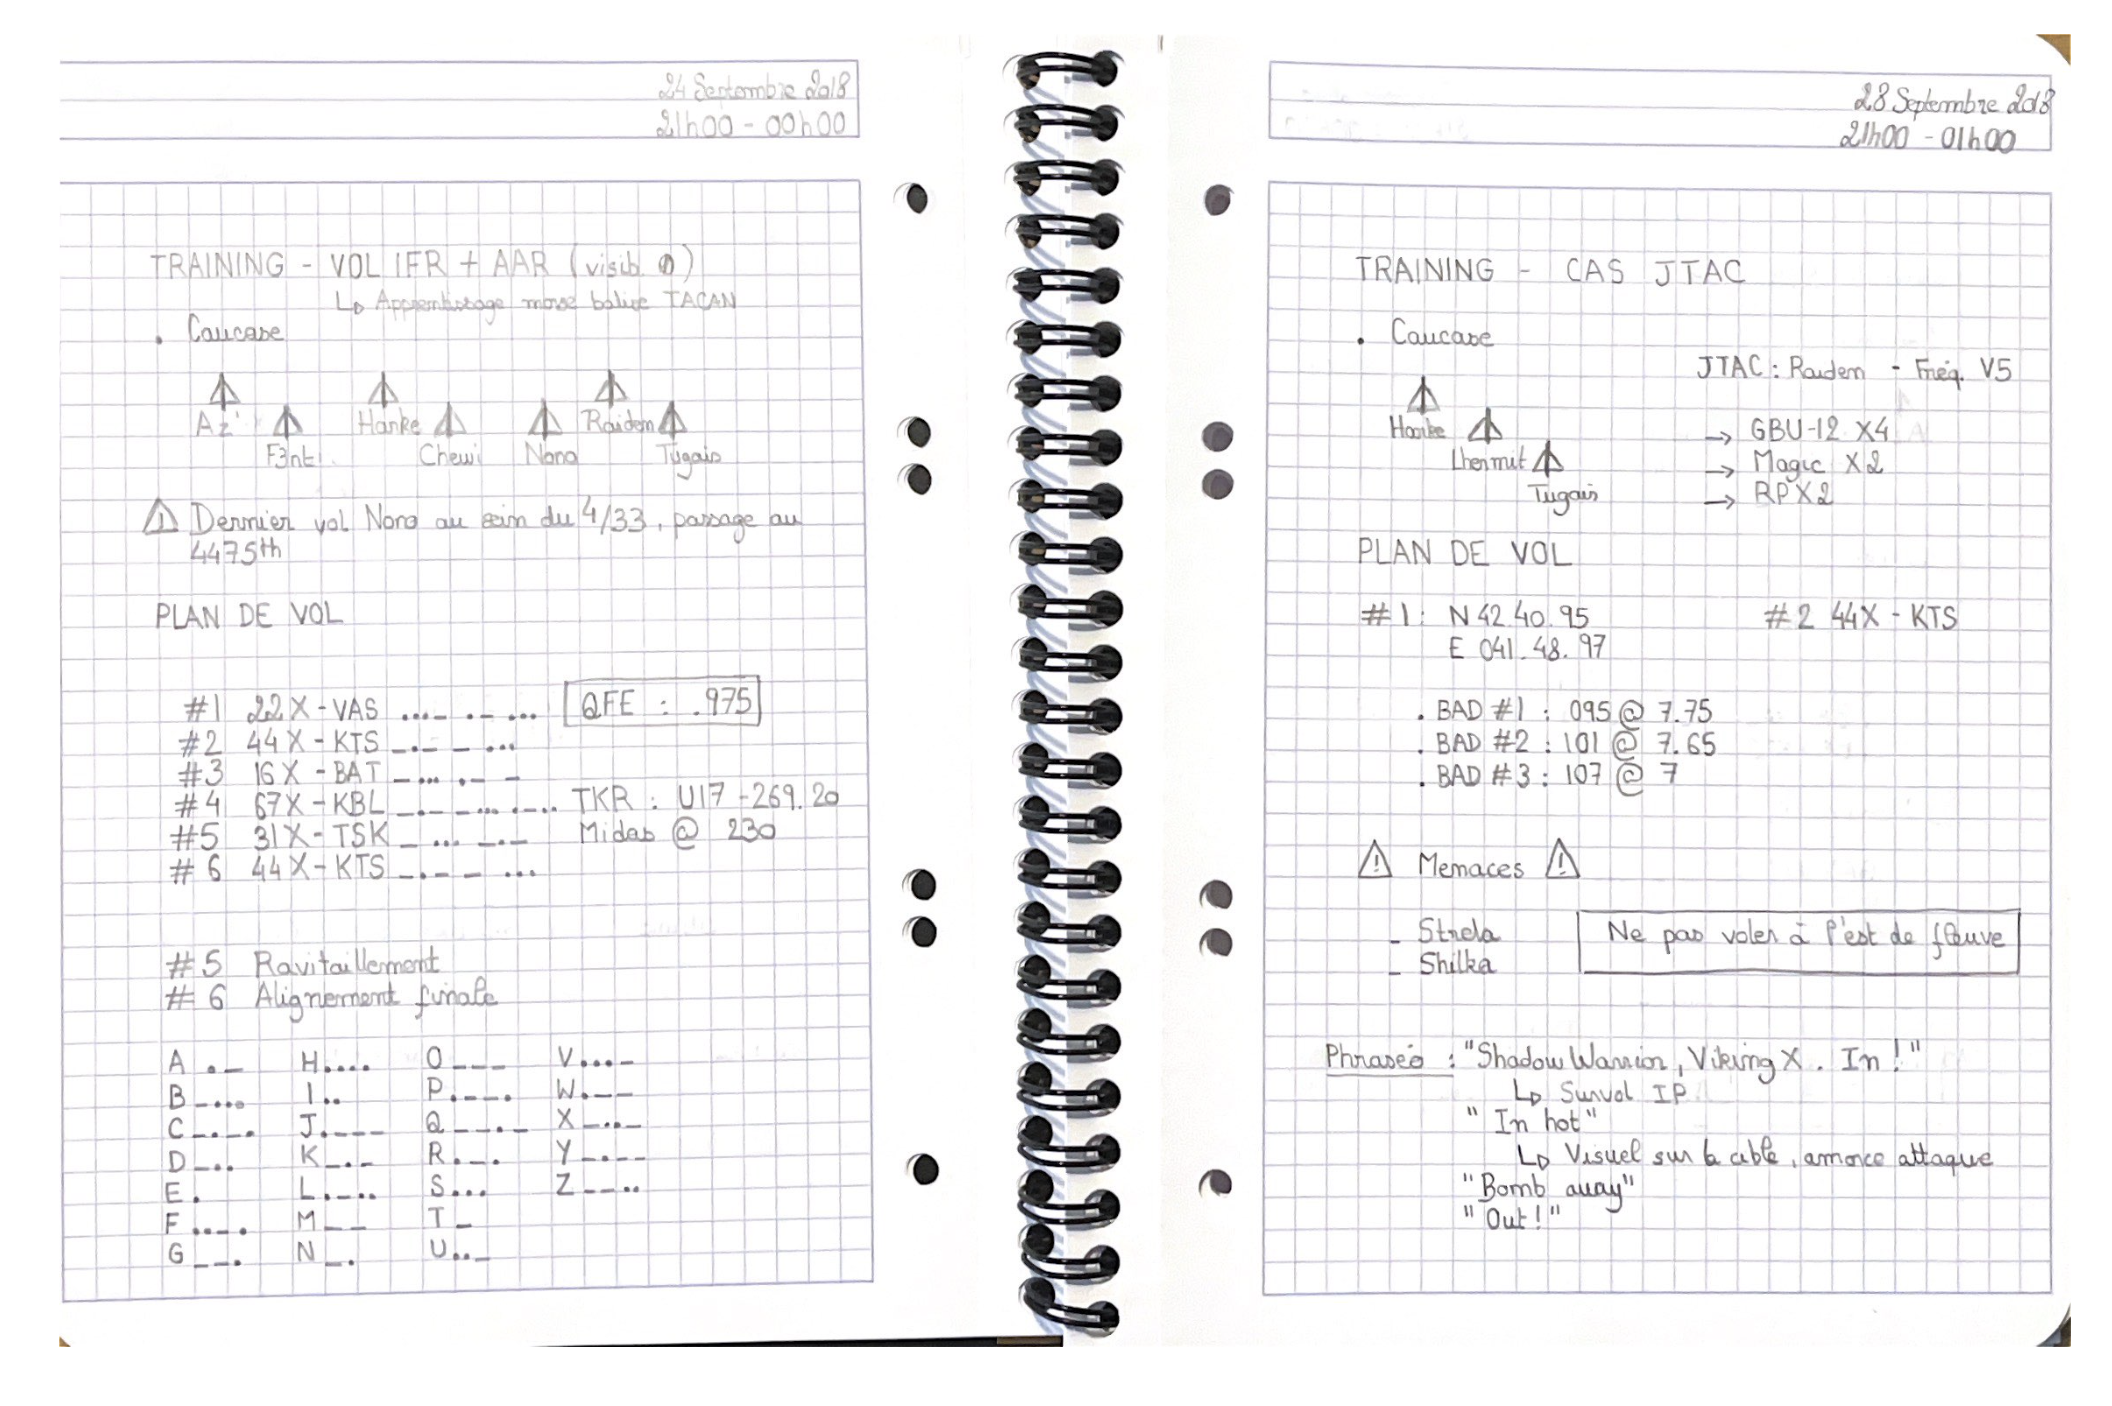 24 Septembre 2018
21h00 - 00h00
TRAINING - VOL IFR + AAR (visib. 0)
↳ Apprentissage morse balise TACAN
. Caucase
Az'
F3nt
Hanke
Chewi
Nono
Raiden
Tugais
⚠ Dernier vol Nono au sein du 4/33, passage au
4475th
PLAN DE VOL
#1 22X-VAS ...- .- ...
QFE : .975
#2 44X-KTS -.- - ...
#3 16X-BAT -... .- -
#4 67X-KBL -.- -... .-..
TKR : U17 - 269.20
#5 31X-TSK - ... -.-
Midas @ 230
#6 44X-KTS -.- - ...
#5 Ravitaillement
#6 Alignement finale
A .- H .... O --- V ...-
B -... I .. P .--. W .--
C -.-. J .--- Q --.- X -..-
D -.. K -.- R .-. Y -.--
E . L .-.. S ... Z --..
F ..-. M -- T -
G --. N -. U ..-
28 Septembre 2018
21h00 - 01h00
TRAINING - CAS JTAC
. Caucase
JTAC : Raiden - Fréq. V5
Hanke
Lhermit
Tugais
→ GBU-12 X4
→ Magic X2
→ RP X2
PLAN DE VOL
#1 : N 42 40.95
E 041.48.97
#2 44X - KTS
. BAD #1 : 095 @ 7.75
. BAD #2 : 101 @ 7.65
. BAD #3 : 107 @ 7
⚠ Menaces ⚠
- Strela
- Shilka
Ne pas voler à l'est de fleuve
Phraséo : "Shadow Warrior, Viking X. In !"
↳ Survol IP
" In hot"
↳ Visuel sur la cible, amorce attaque
"Bomb away"
"Out !"